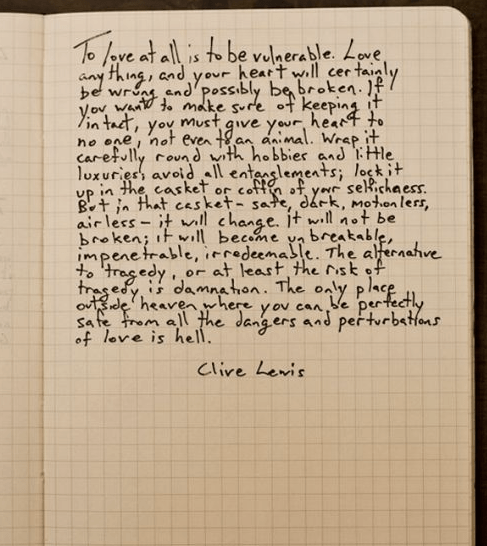 To love at all is to be vulnerable. Love
anything, and your heart will certainly
be wrung and possibly be broken. If
you want to make sure of keeping it
intact, you must give your heart to
no one, not even to an animal. Wrap it
carefully round with hobbies and little
luxuries; avoid all entanglements; lock it
up in the casket or coffin of your selfishness.
But in that casket - safe, dark, motionless,
airless - it will change. It will not be
broken; it will become unbreakable,
impenetrable, irredeemable. The alternative
to tragedy, or at least the risk of
tragedy is damnation. The only place
outside heaven where you can be perfectly
safe from all the dangers and perturbations
of love is hell.
Clive Lewis